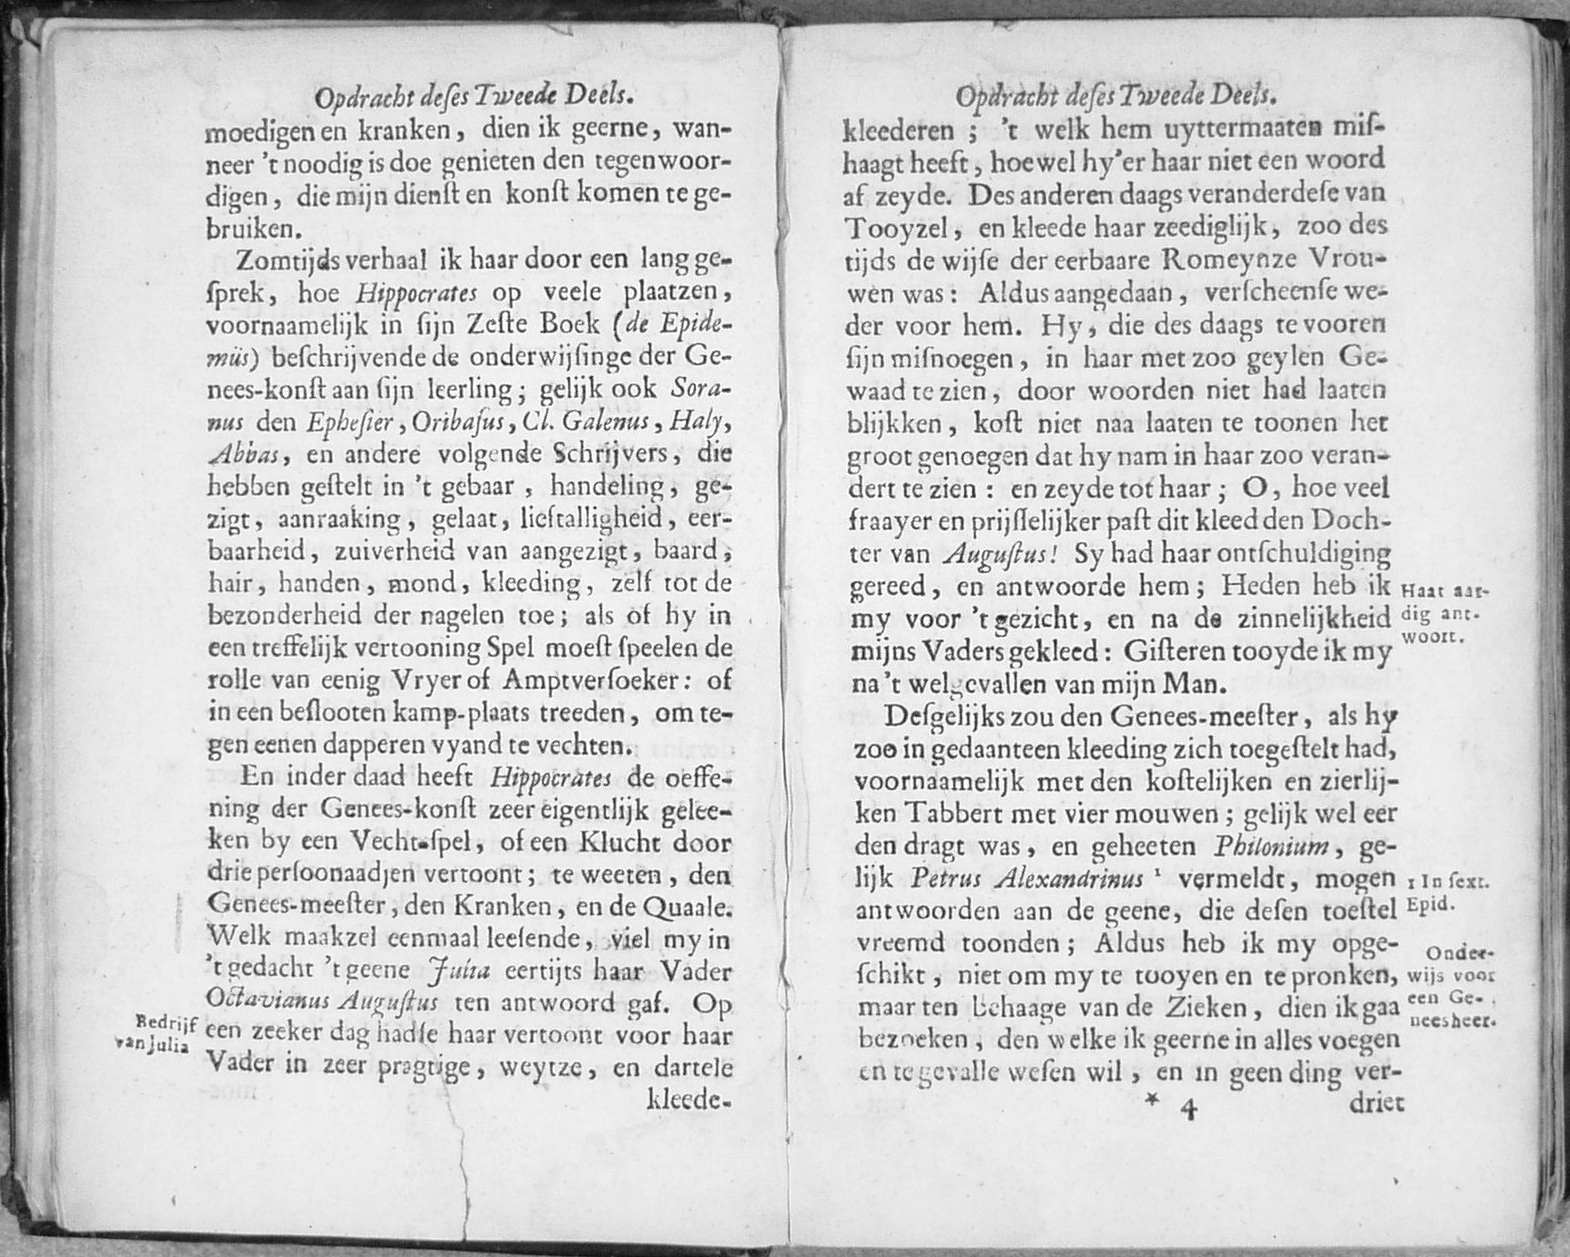 Opdracht deſes Tweede Deels.
moedigen en kranken, dien ik geerne, wan-
neer 't noodig is doe genieten den tegenwoor-
digen, die mijn dienſt en konſt komen te ge-
bruiken.
Zomtijds verhaal ik haar door een lang ge-
ſprek, hoe Hippocrates op veele plaatzen,
voornaamelijk in ſijn Zeſte Boek (de Epide-
müs) beſchrijvende de onderwijſinge der Ge-
nees-konſt aan ſijn leerling; gelijk ook Sora-
nus den Epheſier, Oribaſus, Cl. Galenus, Haly,
Abbas, en andere volgende Schrijvers, die
hebben geſtelt in 't gebaar, handeling, ge-
zigt, aanraaking, gelaat, lieftalligheid, eer-
baarheid, zuiverheid van aangezigt, baard,
hair, handen, mond, kleeding, zelf tot de
bezonderheid der nagelen toe; als of hy in
een treffelijk vertooning Spel moeſt ſpeelen de
rolle van eenig Vryer of Amptverſoeker: of
in een beſlooten kamp-plaats treeden, om te-
gen eenen dapperen vyand te vechten.
En inder daad heeft Hippocrates de oeffe-
ning der Genees-konſt zeer eigentlijk gelee-
ken by een Vecht-ſpel, of een Klucht door
drie perſoonaadjen vertoont; te weeten, den
Genees-meeſter, den Kranken, en de Quaale.
Welk maakzel eenmaal leeſende, viel my in
't gedacht 't geene Julia eertijts haar Vader
Octavianus Auguſtus ten antwoord gaf. Op
een zeeker dag hadſe haar vertoont voor haar
Vader in zeer pragtige, weytze, en dartele
kleede-
Bedrijf
van Julia
Opdracht deſes Tweede Deels.
kleederen; 't welk hem uyttermaaten miſ-
haagt heeft, hoewel hy'er haar niet een woord
af zeyde. Des anderen daags veranderdeſe van
Tooyzel, en kleede haar zeediglijk, zoo des
tijds de wijſe der eerbaare Romeynze Vrou-
wen was: Aldus aangedaan, verſcheenſe we-
der voor hem. Hy, die des daags te vooren
ſijn miſnoegen, in haar met zoo geylen Ge-
waad te zien, door woorden niet had laaten
blijkken, koſt niet naa laaten te toonen het
groot genoegen dat hy nam in haar zoo veran-
dert te zien: en zeyde tot haar; O, hoe veel
fraayer en prijſſelijker paſt dit kleed den Doch-
ter van Auguſtus! Sy had haar ontſchuldiging
gereed, en antwoorde hem; Heden heb ik
my voor 't gezicht, en na de zinnelijkheid
mijns Vaders gekleed: Giſteren tooyde ik my
na 't welgevallen van mijn Man.
Deſgelijks zou den Genees-meeſter, als hy
zoo in gedaanteen kleeding zich toegeſtelt had,
voornaamelijk met den koſtelijken en zierlij-
ken Tabbert met vier mouwen; gelijk wel eer
den dragt was, en geheeten Philonium, ge-
lijk Petrus Alexandrinus ¹ vermeldt, mogen
antwoorden aan de geene, die deſen toeſtel
vreemd toonden; Aldus heb ik my opge-
ſchikt, niet om my te tooyen en te pronken,
maar ten behaage van de Zieken, dien ik gaa
bezoeken, den welke ik geerne in alles voegen
en te gevalle weſen wil, en in geen ding ver-
* 4 driet
Haar aar-
dig ant-
woort.
1 In ſext.
Epid.
Onder-
wijs voor
een Ge-
neesheer.